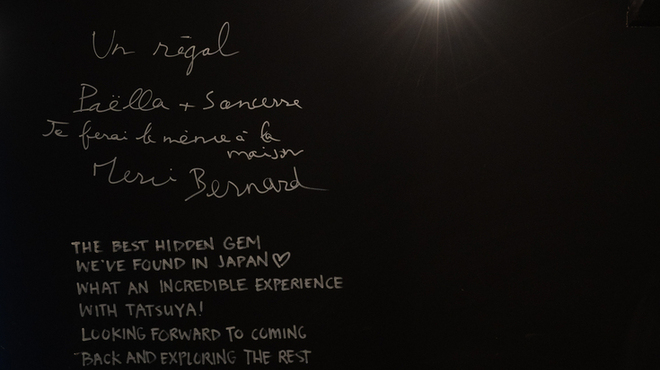 Un régal
Paëlla + Sancerre
Je ferai le même à la
maison
Merci Bernard
THE BEST HIDDEN GEM
WE'VE FOUND IN JAPAN♡
WHAT AN INCREDIBLE EXPERIENCE
WITH TATSUYA!
LOOKING FORWARD TO COMING
BACK AND EXPLORING THE REST